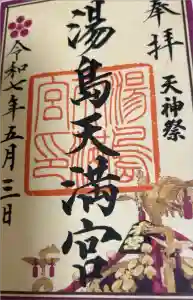 奉拝
天神祭
湯島天満宮
湯島天満宮印
令和七年五月三日